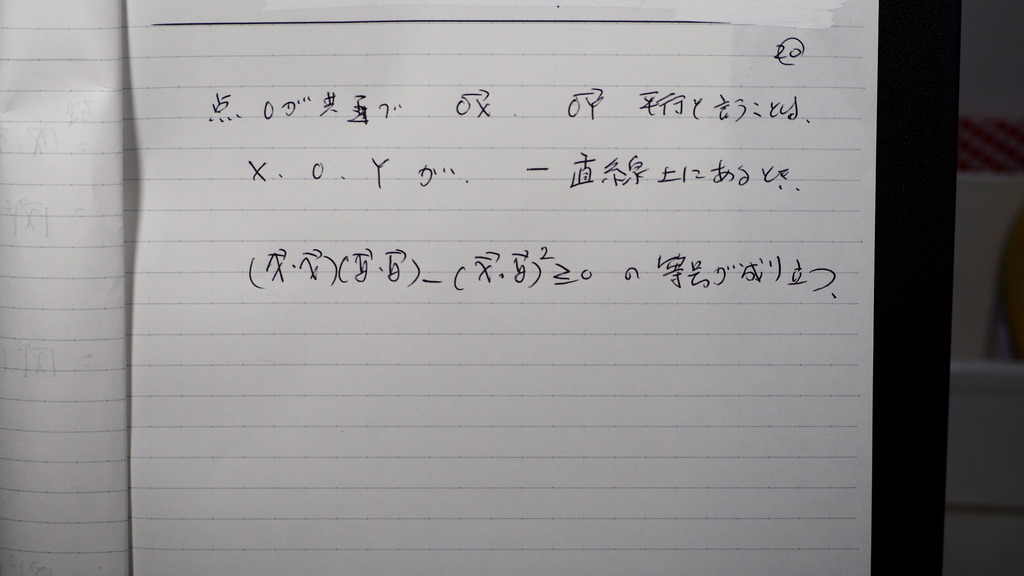 ⑳
点 Oが共通で OX→ OY→ 平行と言うことは、
X、O、Yが、一直線上にあるとき、
(x→・x→)(y→・y→)-(x→・y→)²≧0 の等号が成り立つ、